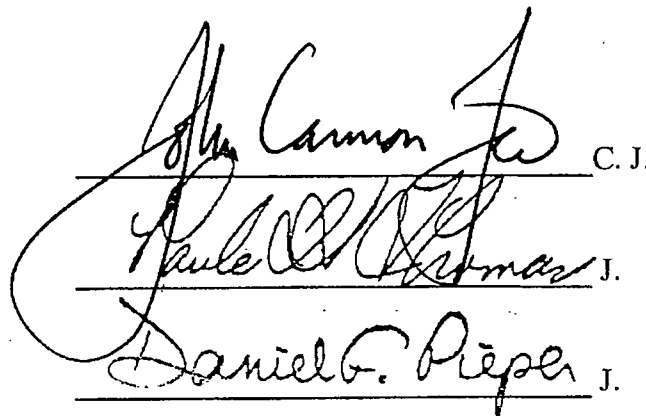 John Cannon Few C. J.
Paula H. Thomas J.
Daniel F. Pieper J.